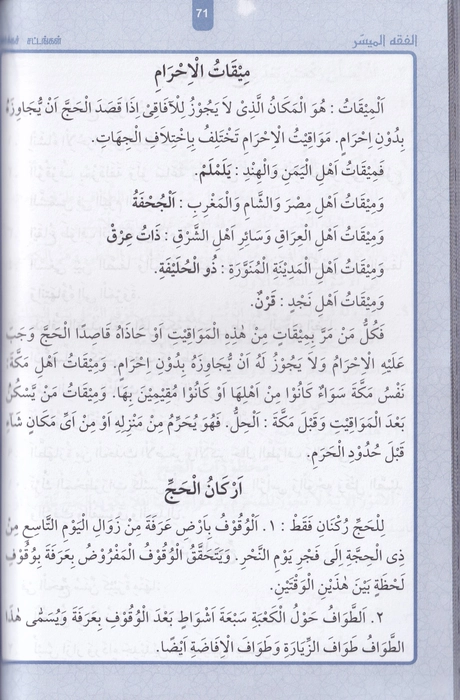 71
الفقه الميسّر
சட்டங்கள்
مِيْقَاتُ الْاِحْرَامِ
اَلْمِيْقَاتُ : هُوَ الْمَكَانُ الَّذِىْ لَا يَجُوْزُ لِلْاٰفَاقِىْ اِذَا قَصَدَ الْحَجَّ اَنْ يُّجَاوِزَهُ
بِدُوْنِ اِحْرَامٍ. مَوَاقِيْتُ الْاِحْرَامِ تَخْتَلِفُ بِاِخْتِلَافِ الْجِهَاتِ.
فَمِيْقَاتُ اَهْلِ الْيَمَنِ وَالْهِنْدِ : يَلَمْلَمْ.
وَمِيْقَاتُ اَهْلِ مِصْرَ وَالشَّامِ وَالْمَغْرِبِ : اَلْجُحْفَةُ
وَمِيْقَاتُ اَهْلِ الْعِرَاقِ وَسَائِرِ اَهْلِ الشَّرْقِ : ذَاتُ عِرْقٌ
وَمِيْقَاتُ اَهْلِ الْمَدِيْنَةِ الْمُنَوَّرَةِ : ذُو الْحُلَيْفَةِ.
وَمِيْقَاتُ اَهْلِ نَجْدٍ : قَرْنٌ.
فَكُلُّ مَنْ مَرَّ بِمِيْقَاتٍ مِنْ هٰذِهِ الْمَوَاقِيْتِ اَوْ حَاذَاهُ قَاصِدًا الْحَجَّ وَجَبَ
عَلَيْهِ الْاِحْرَامُ وَلَا يَجُوْزُ لَهُ اَنْ يُّجَاوِزَهُ بِدُوْنِ اِحْرَامٍ. وَمِيْقَاتُ اَهْلِ مَكَّةَ
نَفْسُ مَكَّةَ سَوَاءٌ كَانُوْا مِنْ اَهْلِهَا اَوْ كَانُوْا مُقِيْمِيْنَ بِهَا. وَمِيْقَاتُ مَنْ يَّسْكُنُ
بَعْدَ الْمَوَاقِيْتِ وَقَبْلَ مَكَّةَ : اَلْحِلُّ. فَهُوَ يُحَرِّمُ مِنْ مَنْزِلِهِ اَوْ مِنْ اَىِّ مَكَانٍ شَاءَ
قَبْلَ حُدُوْدِ الْحَرَمِ.
اَرْكَانُ الْحَجِّ
لِلْحَجِّ رُكْنَانِ فَقَطْ : ١. اَلْوُقُوْفُ بِاَرْضِ عَرَفَةَ مِنْ زَوَالِ الْيَوْمِ التَّاسِعِ مِنْ
ذِى الْحِجَّةِ اِلَى فَجْرِ يَوْمِ النَّحْرِ. وَيَتَحَقَّقُ الْوُقُوْفُ الْمَفْرُوْضُ بِعَرَفَةَ بِوُقُوْفِ
لَحْظَةٍ بَيْنَ هٰذَيْنِ الْوَقْتَيْنِ.
٢. اَلطَّوَافُ حَوْلُ الْكَعْبَةِ سَبْعَةَ اَشْوَاطٍ بَعْدَ الْوُقُوْفِ بِعَرَفَةَ وَيُسَمَّى هٰذَا
الطَّوَافُ طَوَافَ الزِّيَارَةِ وَطَوَافَ الْاِفَاضَةِ اَيْضًا.